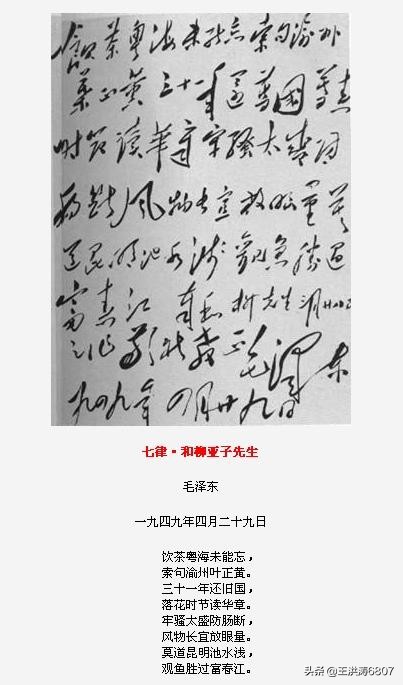 飲茶粤海未能忘索句渝州
葉正黄三十一年還舊國落花
时節读華章牢騷太盛防
腸断风物长宜放眼量莫
道昆明池水浅觀魚勝過
富春江 奉和柳先生三月廿八日
之作敬祈教正 毛泽东
一九四九年四月廿九日
七律·和柳亚子先生
毛泽东
一九四九年四月二十九日
饮茶粤海未能忘，
索句渝州叶正黄。
三十一年还旧国，
落花时节读华章。
牢骚太盛防肠断，
风物长宜放眼量。
莫道昆明池水浅，
观鱼胜过富春江。
头条 @王洪涛6807